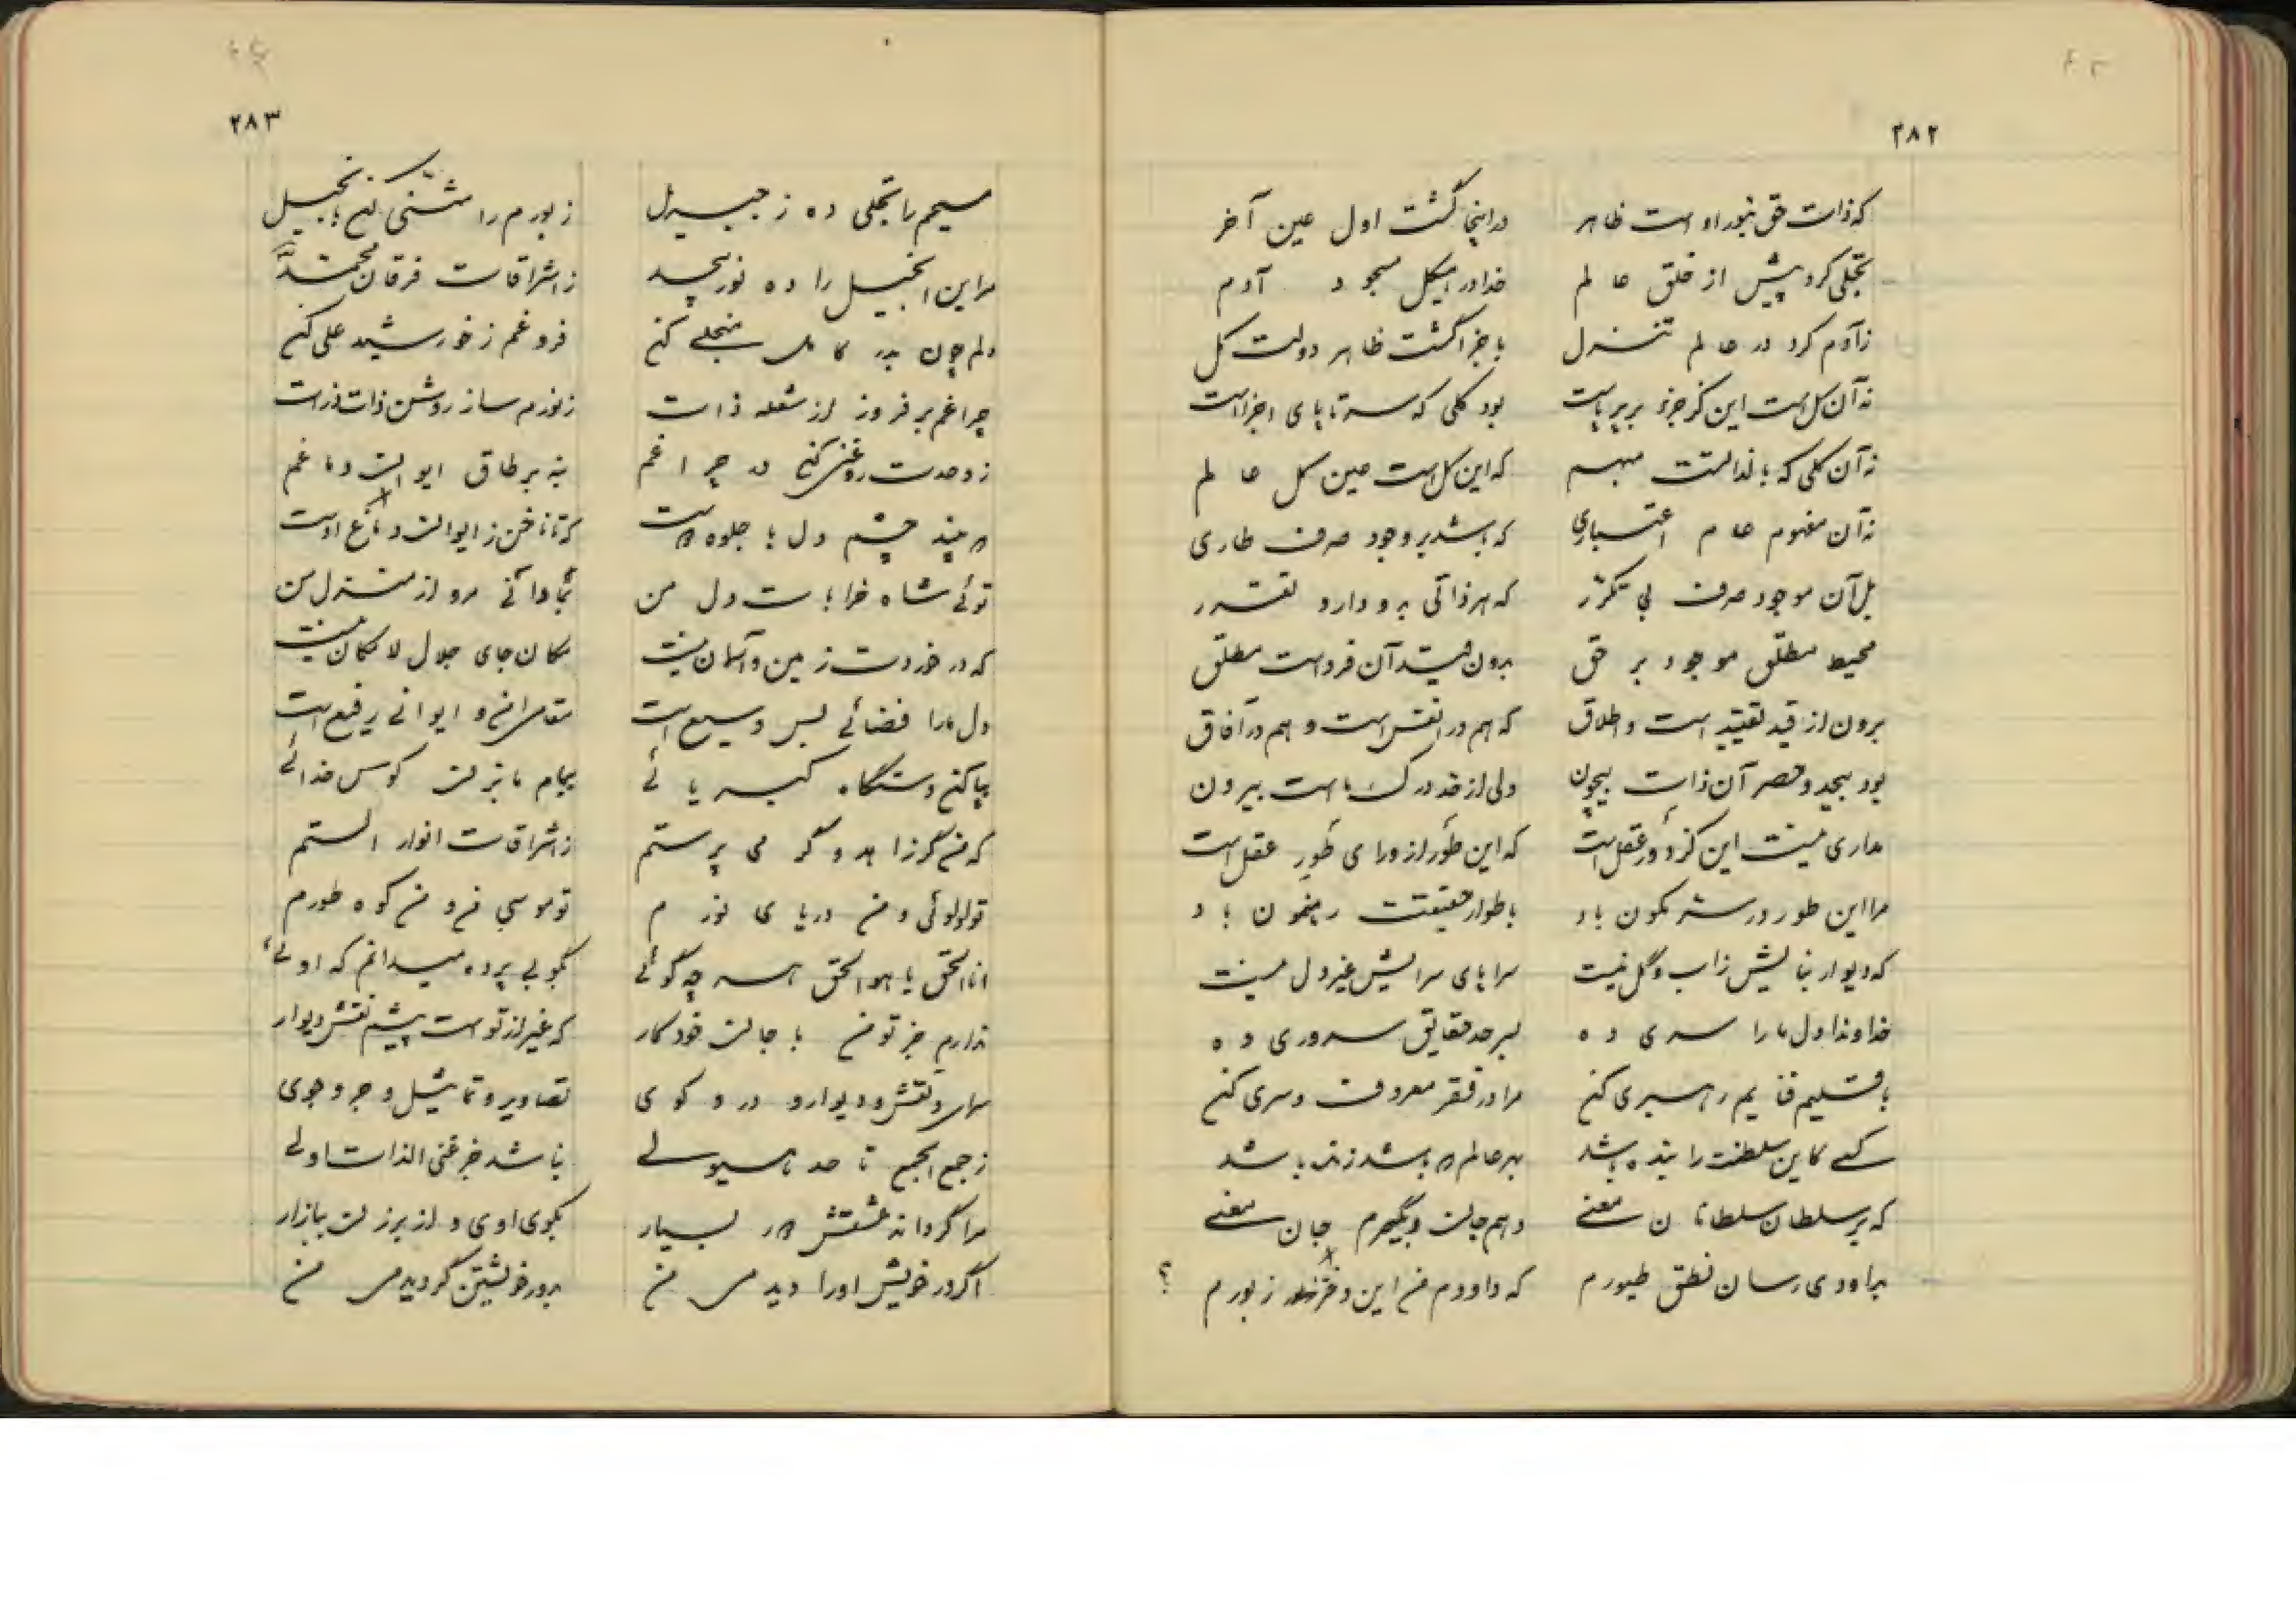 ۲۸۲
که ذات حق بنور او است ظاهر در اینجا گشت اول عین آخر
تجلی کرد پیش از خلق عالم خدا در هیکل مسجود آدم
ز آدم کرد در عالم تنزل باجزا گشت ظاهر دولت کل
نه آن کل است این کز جزو بر پاست بود کلی که سر تا پای اجزاست
نه آن کلی که بالذاتست مبهم که این کل است عین کل عالم
نه آن مفهوم عام اعتباری که باشد بر وجود صرف طاری
بل آن موجود صرف بی تکثر که هر ذاتی بدو دارد تقرر
محیط مطلق موجود بر حق برون از قید آن فرد است مطلق
برون از قید تقیید است و اطلاق که هم در انفس است و هم در آفاق
بود بیحد و حصر آن ذات بیچون ولی از حد درک ما است بیرون
عاری نیست این کز دور عقل است که این طور از ورای طور عقل است
مرا این طور در سر رهنمون باد باطوار حقیقت رهنمون باد
که دیوار بنایش ز آب و گل نیست سراپای سرایش غیر دل نیست
خداوندا دل ما را سری ده بسر حد حقایق سروری ده
باقلیم فنایم رهبری کن مرا در فقر معروف و سری کن
کسی کاین سلطنت را بنده باشد بهر عالم که باشد زنده باشد
که بر سلطان سلطانان معنی دهم جان و بگیرم جان معنی
بداودی رسان نطق طیورم که داودم من این دفتر زبورم ؟
۲۸۳
مسیحم را تجلی ده ز جبریل زبورم را مثنی کن بانجیل
مر این انجیل را ده نور بیحد ز اشراقات فرقان محمد
دلم چون بدر کامل منجلی کن فروغم ز خورشید علی کن
چراغم بر فروز از شعله ذات ز نورم ساز روشن ذات ذرات
ز وحدت روغنی کن در چراغم بنه بر طاق ایوان دماغم
که بیند چشم دل با جلوه دوست که تا ناخن ز ایوان دماغ اوست
توئی شاه خرابات دل من مبادا آنی مرو از منزل من
که در خوردت زمین و آسمان نیست مکان جای جلال لامکان نیست
دل ما را فضائی بس وسیع است مقامرانه و ایوانی رفیع است
بپا کن دستگاه کبریائی ببام ما بزن کوس خدائی
که من گر زاهد و گر می پرستم ز اشراقات انوار الستم
تو لولوئی و من دریای نورم تو موسی من و من کوه طورم
انا الحق یا هو الحق هر چه گوئی بگو بی پرده میدانم که اوئی
ندارم جز تو من با جان خود کار که غیر از تو است پیشم نقش دیوار
سرای و نقش و دیوار و در و کوی تصاویر و تماثیل و جر و جوی
ز جمع الجمع تا حد هیولی نباشد جز غنی الذات اولی
مرا گرداند عشقش بسیار بکوی او و از برزن ببازار
اگر در خویش او را دیدمی من بدور خویشتن گردیدمی من